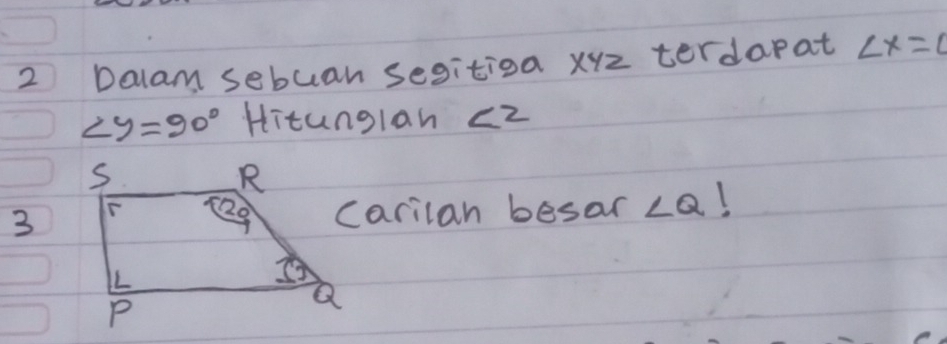 2 Dalam sebuah segitiga XYZ terdapat ∠x=
∠y=90° Hitunglah ∠Z
S R
3 Carilah besar ∠Q!
P Q